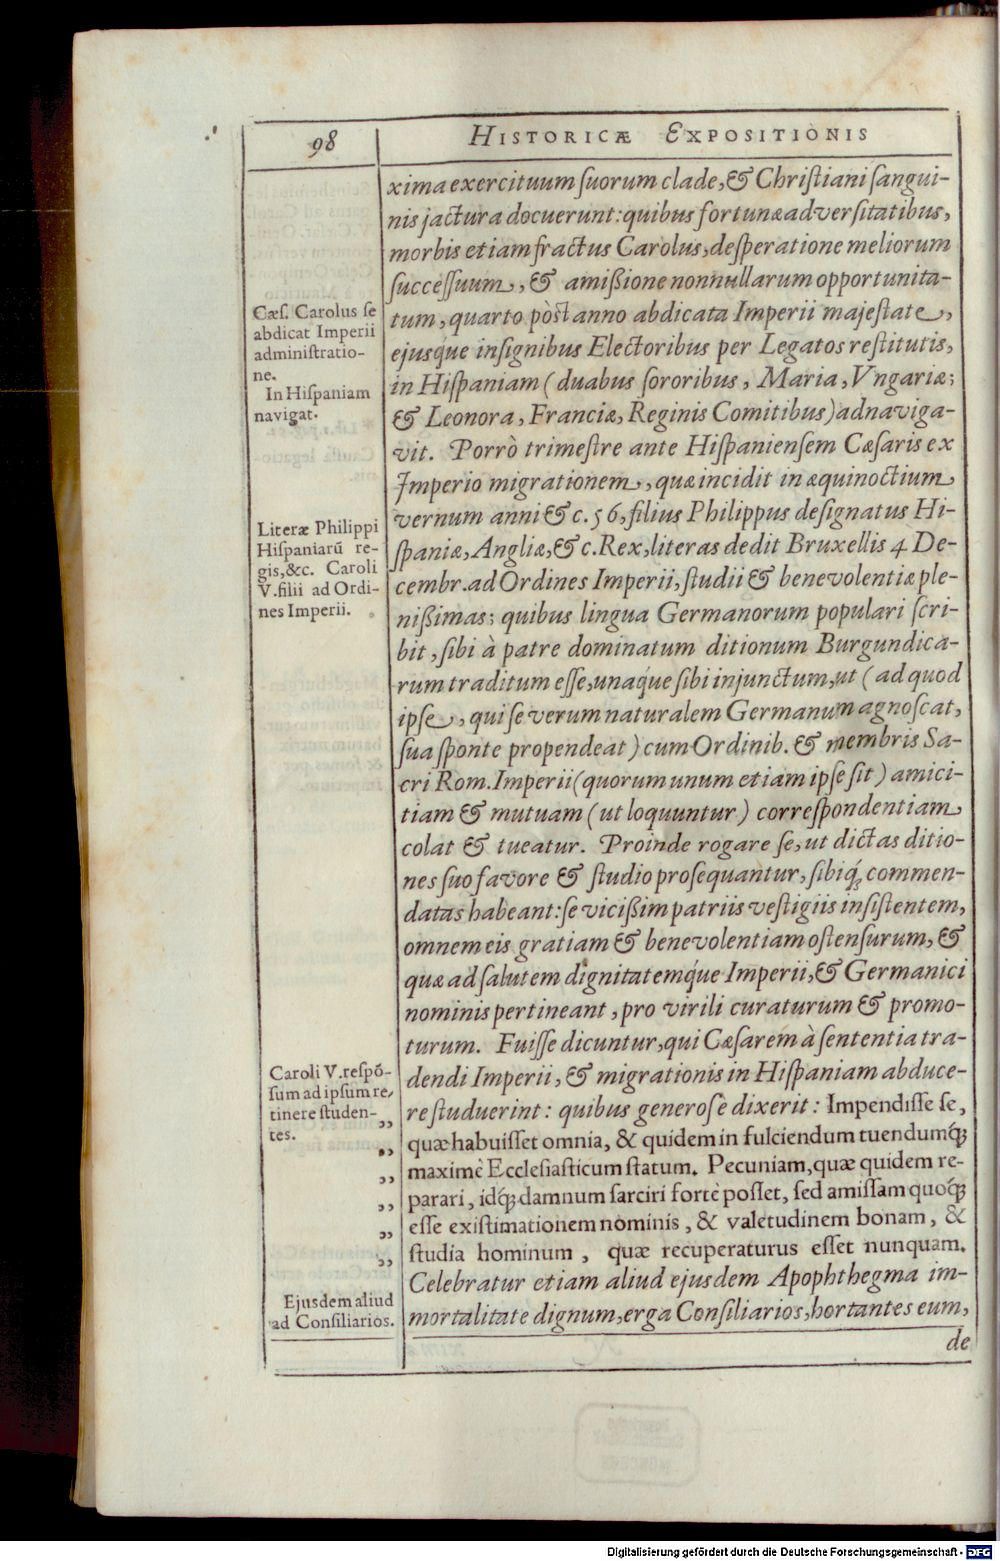 98
HISTORICÆ EXPOSITIONIS
xima exercituum suorum clade, & Christiani sangui-
nis jactura docuerunt: quibus fortunæ adversitatibus,
morbis etiam fractus Carolus, desperatione meliorum
successuum, & amißione nonnullarum opportunita-
tum, quarto pòst anno abdicata Imperii majestate,
ejusq́ue insignibus Electoribus per Legatos restitutis,
in Hispaniam (duabus sororibus, Maria, Vngariæ;
& Leonora, Franciæ, Reginis Comitibus) adnaviga-
vit. Porrò trimestre ante Hispaniensem Cæsaris ex
Imperio migrationem, quæ incidit in æquinoctium
vernum anni &c. 56, filius Philippus designatus Hi-
spaniæ, Angliæ, &c. Rex, literas dedit Bruxellis 4 De-
cembr. ad Ordines Imperii, studii & benevolentiæ ple-
nißimas; quibus lingua Germanorum populari scri-
bit, sibi à patre dominatum ditionum Burgundica-
rum traditum esse, unaq́ue sibi injunctum, ut (ad quod
ipse, qui se verum naturalem Germanum agnoscat,
sua sponte propendeat) cum Ordinib. & membris Sa-
cri Rom. Imperii (quorum unum etiam ipse sit) amici-
tiam & mutuam (ut loquuntur) correspondentiam
colat & tueatur. Proinde rogare se, ut dictas ditio-
nes suo favore & studio prosequantur, sibiq́; commen-
datas habeant: se vicißim patriis vestigiis insistentem,
omnem eis gratiam & benevolentiam ostensurum, &
quæ ad salutem dignitatemq́ue Imperii, & Germanici
nominis pertineant, pro virili curaturum & promo-
turum. Fuisse dicuntur, qui Cæsarem à sententia tra-
dendi Imperii, & migrationis in Hispaniam abduce-
re studuerint: quibus generosè dixerit: Impendisse se,
,, quæ habuisset omnia, & quidem in fulciendum tuendumq́;
,, maximè Ecclesiasticum statum. Pecuniam, quæ quidem re-
,, parari, idq́; damnum sarciri fortè posset, sed amissam quoq́;
,, esse existimationem nominis, & valetudinem bonam, &
,, studia hominum, quæ recuperaturus esset nunquam.
Celebratur etiam aliud ejusdem Apophthegma im-
mortalitate dignum, erga Consiliarios, hortantes eum,
de
Cæs. Carolus se
abdicat Imperii
administratio-
ne.
In Hispaniam
navigat.
Literæ Philippi
Hispaniarū re-
gis, &c. Caroli
V. filii ad Ordi-
nes Imperii.
Caroli V. respō-
sum ad ipsum re-
tinere studen-
tes.
Ejusdem aliud
ad Consiliarios.
Digitalisierung gefördert durch die Deutsche Forschungsgemeinschaft - DFG